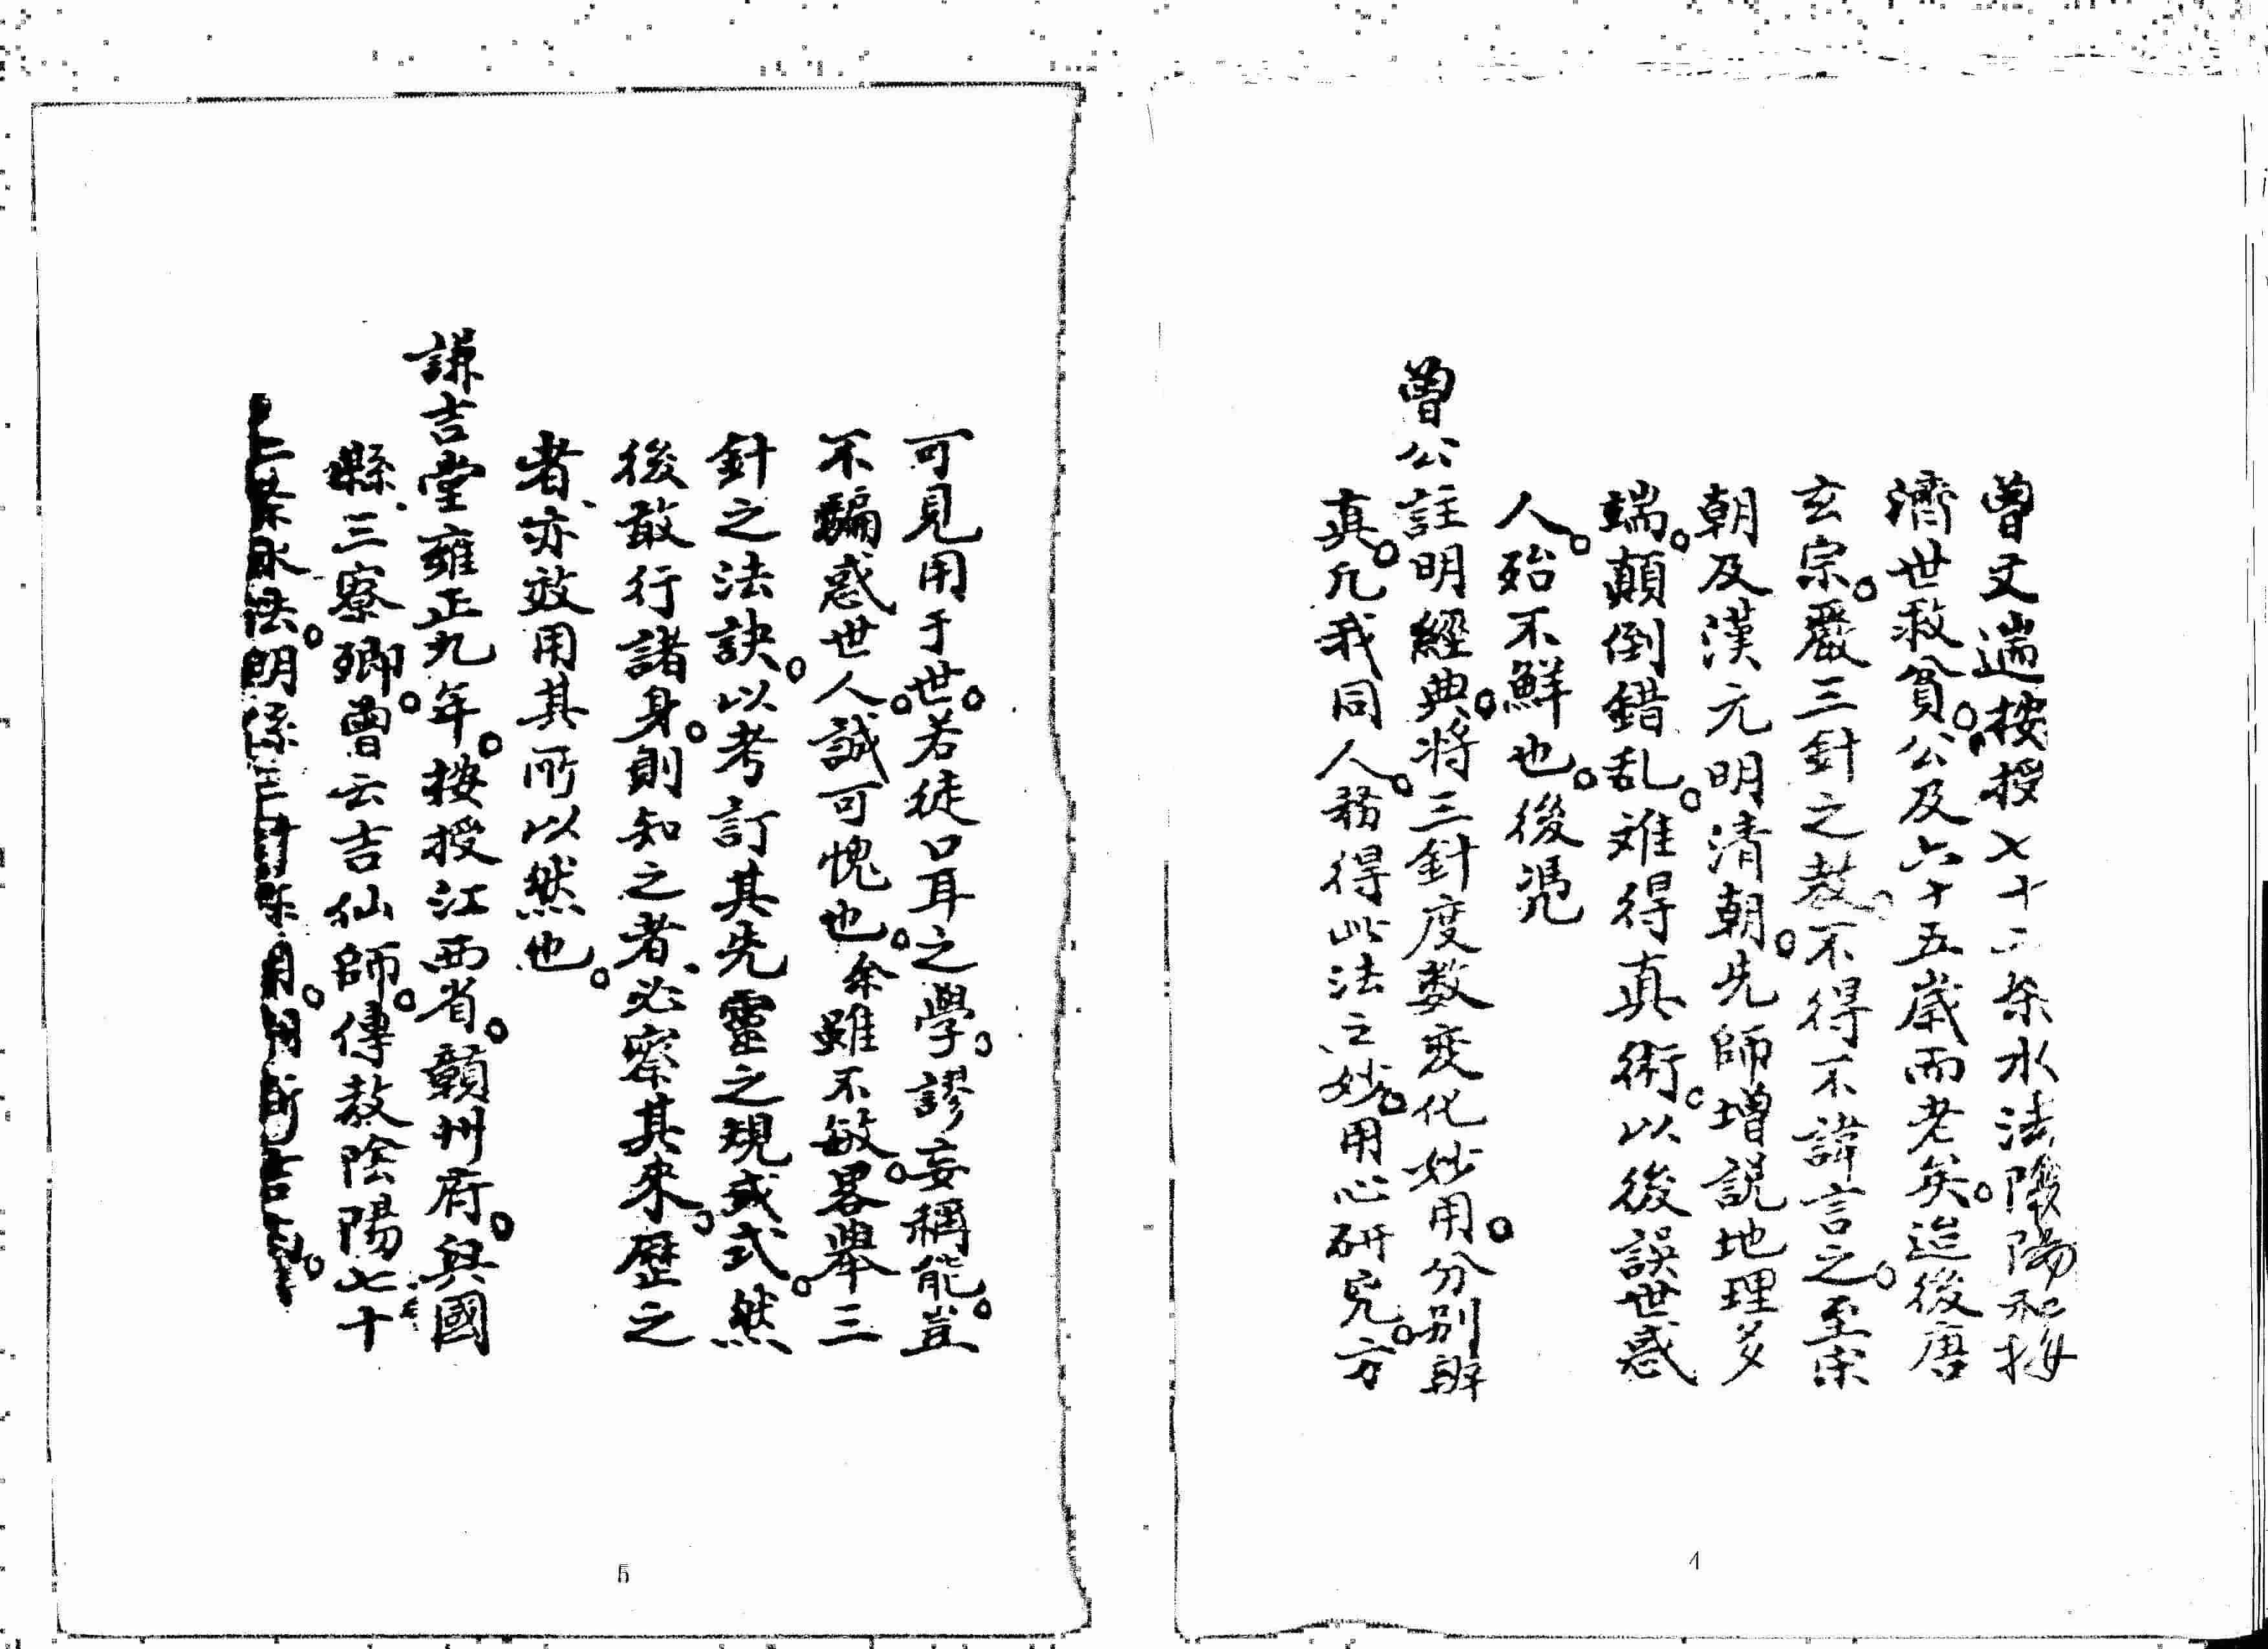 曾文遄按授七十二条水法陰陽和按
濟世救貧。公及六十五歲而老矣。迨後唐
玄宗。嚴三針之教。不得不諱言之。至宋
朝及漢元明清朝。先師增説地理多
端。顛倒錯乱。难得真術。以後誤世惑
人。殆不鮮也。後凴
曾公註明經典。將三針度数変化妙用。分别辨
真。凡我同人。務得此法之妙。用心研究。方
4
可見用于世。若徒口耳之學。謬妄稱能。豈
不騙惑世人。誠可愧也。余雖不敏。畧舉三
針之法訣。以考訂其先靈之規式。然
後敢行諸身。則知之者、必察其来歷之
者、亦效用其所以然也。
謙吉堂雍正九年。按授江西省。贛州府。興國
縣、三寮鄉。曾云吉仙師。傳教陰陽七十
二条水法。明係三針
5